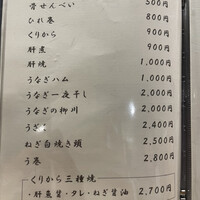 骨せんべい 500円
ひれ巻 800円
くりから 900円
肝煮 900円
肝焼 1,000円
うなぎハム 1,000円
うなぎ一夜干し 2,000円
うなぎの柳川 2,000円
うざく 2,400円
ねぎ白焼き 2,500円
う巻 2,800円
くりから三種焼
・肝煮醤・タレ・ねぎ醤油 2,700円